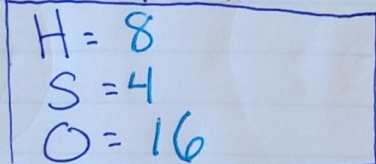 H = 8
S = 4
O = 16